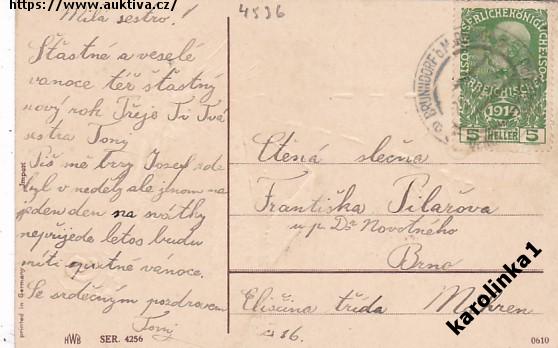 https://www.auktiva.cz/
Milá sestro!
4536
Šťastné a veselé
vanoce téř štastný
nový rok Přeje Ti Tvá
sestra Tony
Piš mě brzy Josef zde
byl v nedely ale jenom na
jeden den na svátky
nepřijede letos budu
míti smutné vánoce.
Se srdečným pozdravem
Tony
Ctěná slečna
Františka Pilařova
u p. Dr Novotného
Brno
Eliščina třída Mähren
č 86.
BRUNNDORF b. M.
KAISERLICHE KÖNIGLICHE
1914
5 HELLER 5
Import
printed in Germany
HWB SER. 4256
0610
karolinka1